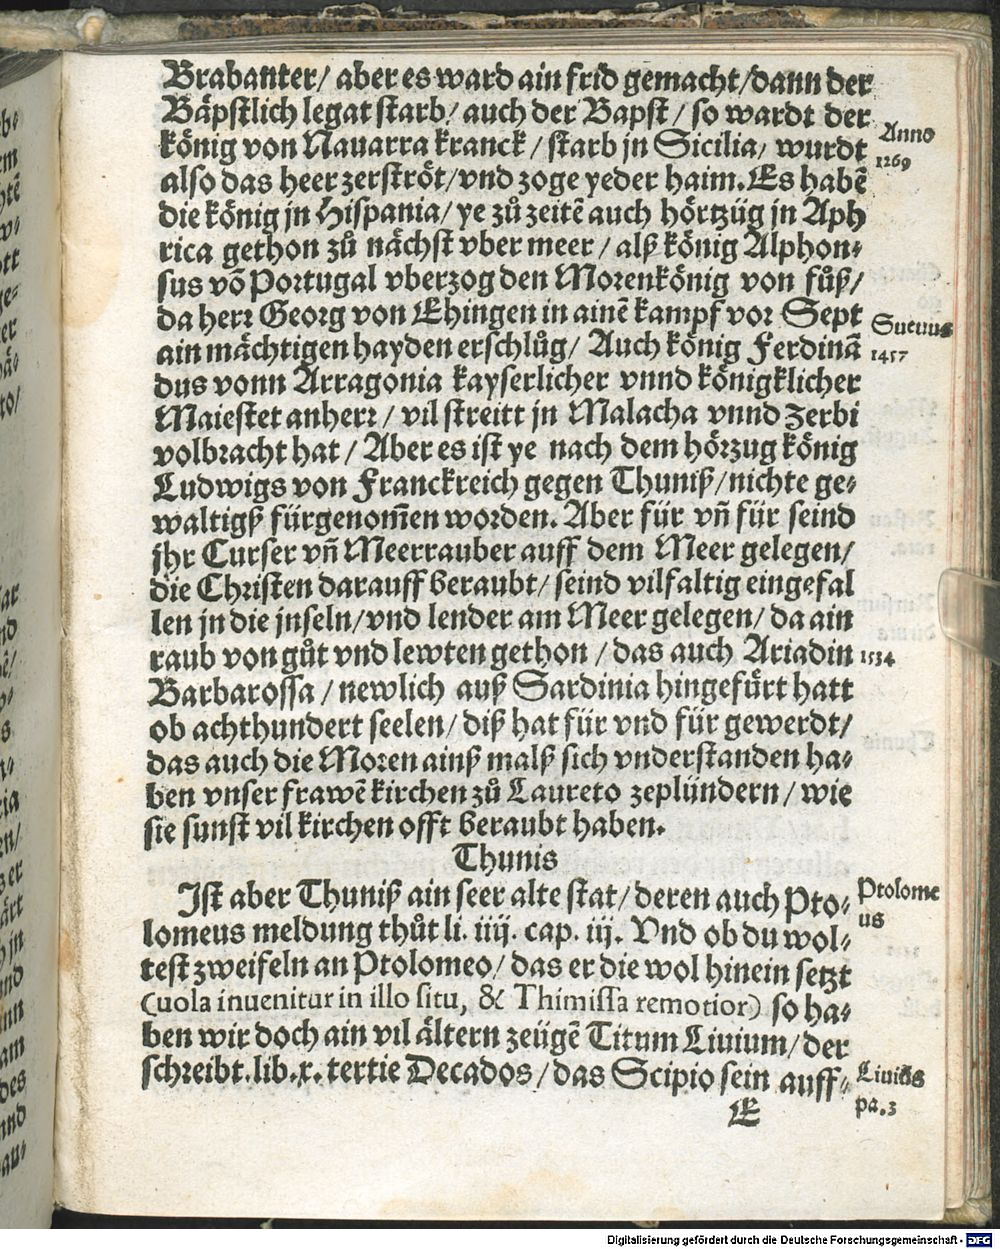 Brabanter/ aber es ward ain frid gemacht/dann der
Bäpstlich legat starb/ auch der Bapst / so wardt der
könig von Nauarra kranck / starb jn Sicilia/ wurdt
Anno
1269
also das heer zerströt/vnd zoge yeder haim. Es habẽ
die könig jn Hispania/ ye zů zeitẽ auch hörtzüg jn Aph
rica gethon zů nächst vber meer / alß könig Alphon⸗
sus võ Portugal vberzog den Morenkönig von fůß/
da herꝛ Georg von Ehingen in ainẽ kampf voꝛ Sept
Sueuus
1457
ain mächtigen hayden erschlůg/ Auch könig Ferdinã
dus vonn Arragonia kayserlicher vnnd königklicher
Maiestet anherꝛ / vil streitt jn Malacha vnnd Zerbi
volbracht hat / Aber es ist ye nach dem hörzug könig
Ludwigs von Franckreich gegen Thuniß/nichte ge⸗
waltigß fürgenom̃en worden. Aber für vñ für seind
jhr Curser vñ Meerrauber auff dem Meer gelegen/
die Chꝛisten darauff beraubt/ seind vilfaltig eingefal
len jn die jnseln/vnd lender am Meer gelegen/ da ain
raub von gůt vnd lewten gethon / das auch Ariadin
1534
Barbarossa / newlich auß Sardinia hingefürt hatt
ob achthundert seelen/ diß hat für vnd für gewerdt/
das auch die Moꝛen ainß malß sich vnderstanden ha⸗
ben vnser frawẽ kirchen zů Laureto zeplündern / wie
sie sunst vil kirchen offt beraubt haben.
Thunis
Ist aber Thuniß ain seer alte stat/ deren auch Pto⸗
Ptolome
us
lomeus meldung thůt li. iiij. cap. iij. Vnd ob du wol⸗
test zweifeln an Ptolomeo/ das er die wol hinein setzt
(uola inuenitur in illo situ, & Thimissa remotior) so ha⸗
ben wir doch ain vil ältern zeügẽ Titum Liuium/ der
schꝛeibt. lib. x. tertie Decados / das Scipio sein auff⸗
Liuius
pa. 3
E
Digitalisierung gefördert durch die Deutsche Forschungsgemeinschaft - DFG